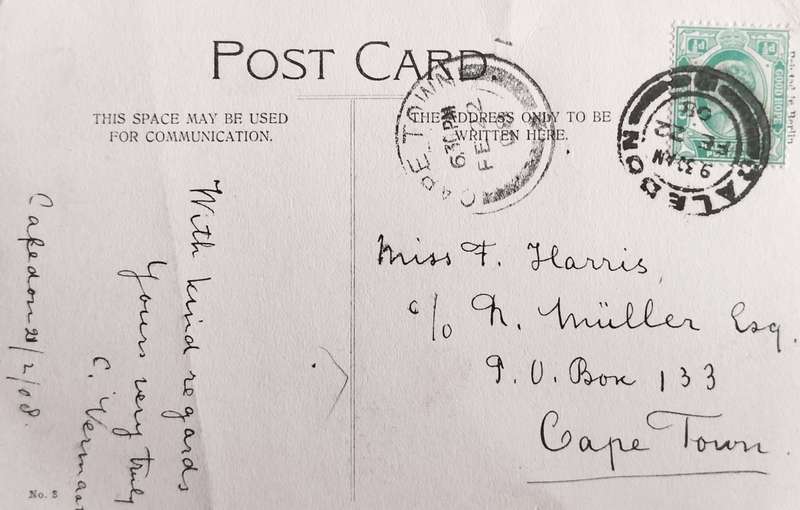 POST CARD.
THIS SPACE MAY BE USED
FOR COMMUNICATION.
THE ADDRESS ONLY TO BE
WRITTEN HERE.
CAPE TOWN
6.30 PM
FE 22
08
CALEDON
9.30 AM
FE 22
08
GOOD HOPE
Printed in Berlin
With kind regards
Yours very truly
C. Vermaa
Caledon 21/2/08.
Miss F. Harris,
c/o N. Müller Esq.
P. O. Box 133
Cape Town.
No. 8